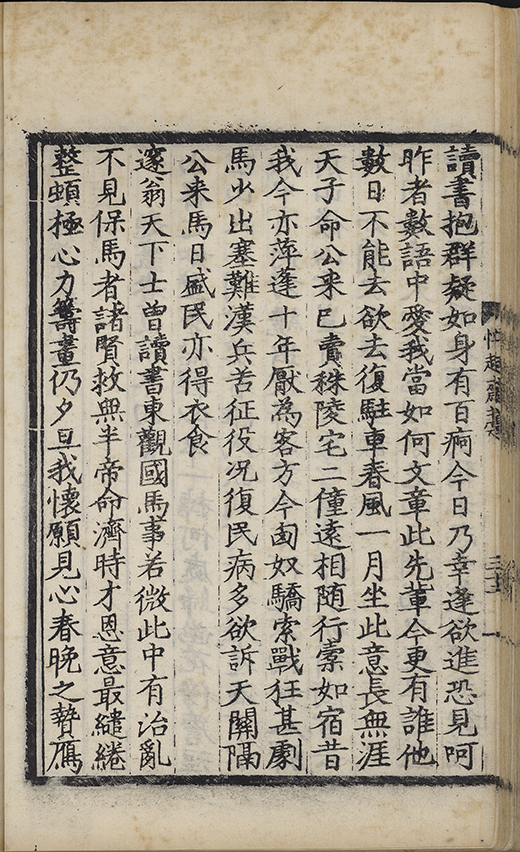 讀書抱群疑如身有百痾今日乃幸逢欲進恐見呵
昨者數語中愛我當如何文章此先輩今更有誰他
數日不能去欲去復駐車春風一月坐此意長無涯
天子命公来已賣秣陵宅二僮遠相随行槖如宿昔
我今亦萍蓬十年厭為客方今匈奴驕索戰狂甚劇
馬少出塞難漢兵苦征役况復民病多欲訴天關隔
公来馬日盛民亦得衣食
邃翁天下士曽讀書東觀國馬事若微此中有治亂
不見保馬者諸賢救無半帝命濟時才恩意最繾綣
整頓極心力籌畫仍夕旦我懷願見心春晚之贄鴈